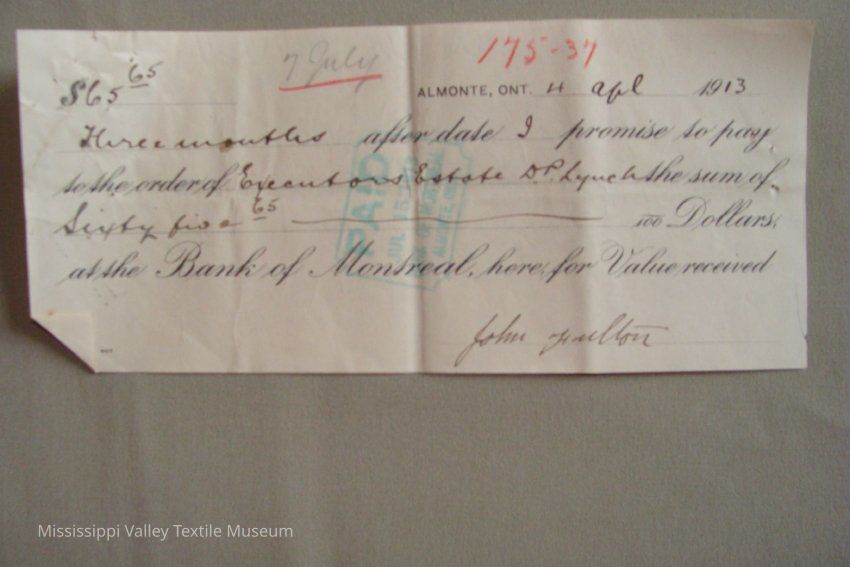 $65 65
7 July
175-37
ALMONTE, ONT. 4 Apl 1913
Three months after date I promise to pay
to the order of Executors Estate D.P. Lynch the sum of
Sixty five 65 100 Dollars,
at the Bank of Montreal, here, for Value received
PAID
JUL 15 1913
BANK OF MONTREAL
ALMONTE, ONT.
John Fulton
Mississippi Valley Textile Museum